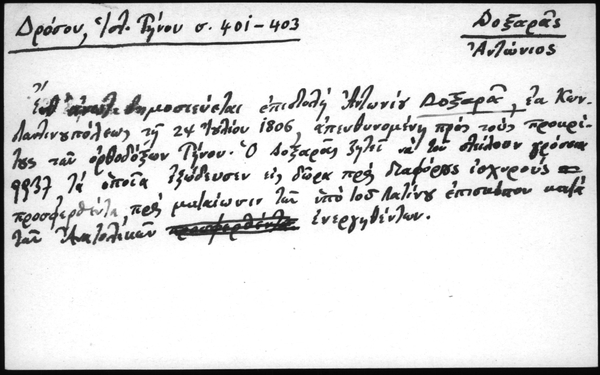 Δρόσου, Ἱστ. Τήνου σ. 401-403
Δοξαρᾶς
Ἀντώνιος
δημοσιεύεται ἐπιστολὴ Ἀντωνίου Δοξαρᾶ, ἐκ Κων-
σταντινουπόλεως τῇ 24 Ἰουλίου 1806, ἀπευθυνομένη πρὸς τοὺς προκρί-
τους τῶν ὀρθοδόξων Τήνου. Ὁ Δοξαρᾶς ζητεῖ νὰ τῷ στείλουν γρόσια
9937 τὰ ὁποῖα ἐξώδευσεν εἰς δῶρα πρὸς διαφόρους ἰσχυροὺς
προσφερθέντα, πρὸς ματαίωσιν τῶν ὑπὸ τοῦ Λατίνου ἐπισκόπου κατὰ
τῶν Ἀνατολικῶν προσφερθέντα ἐνεργηθέντων.